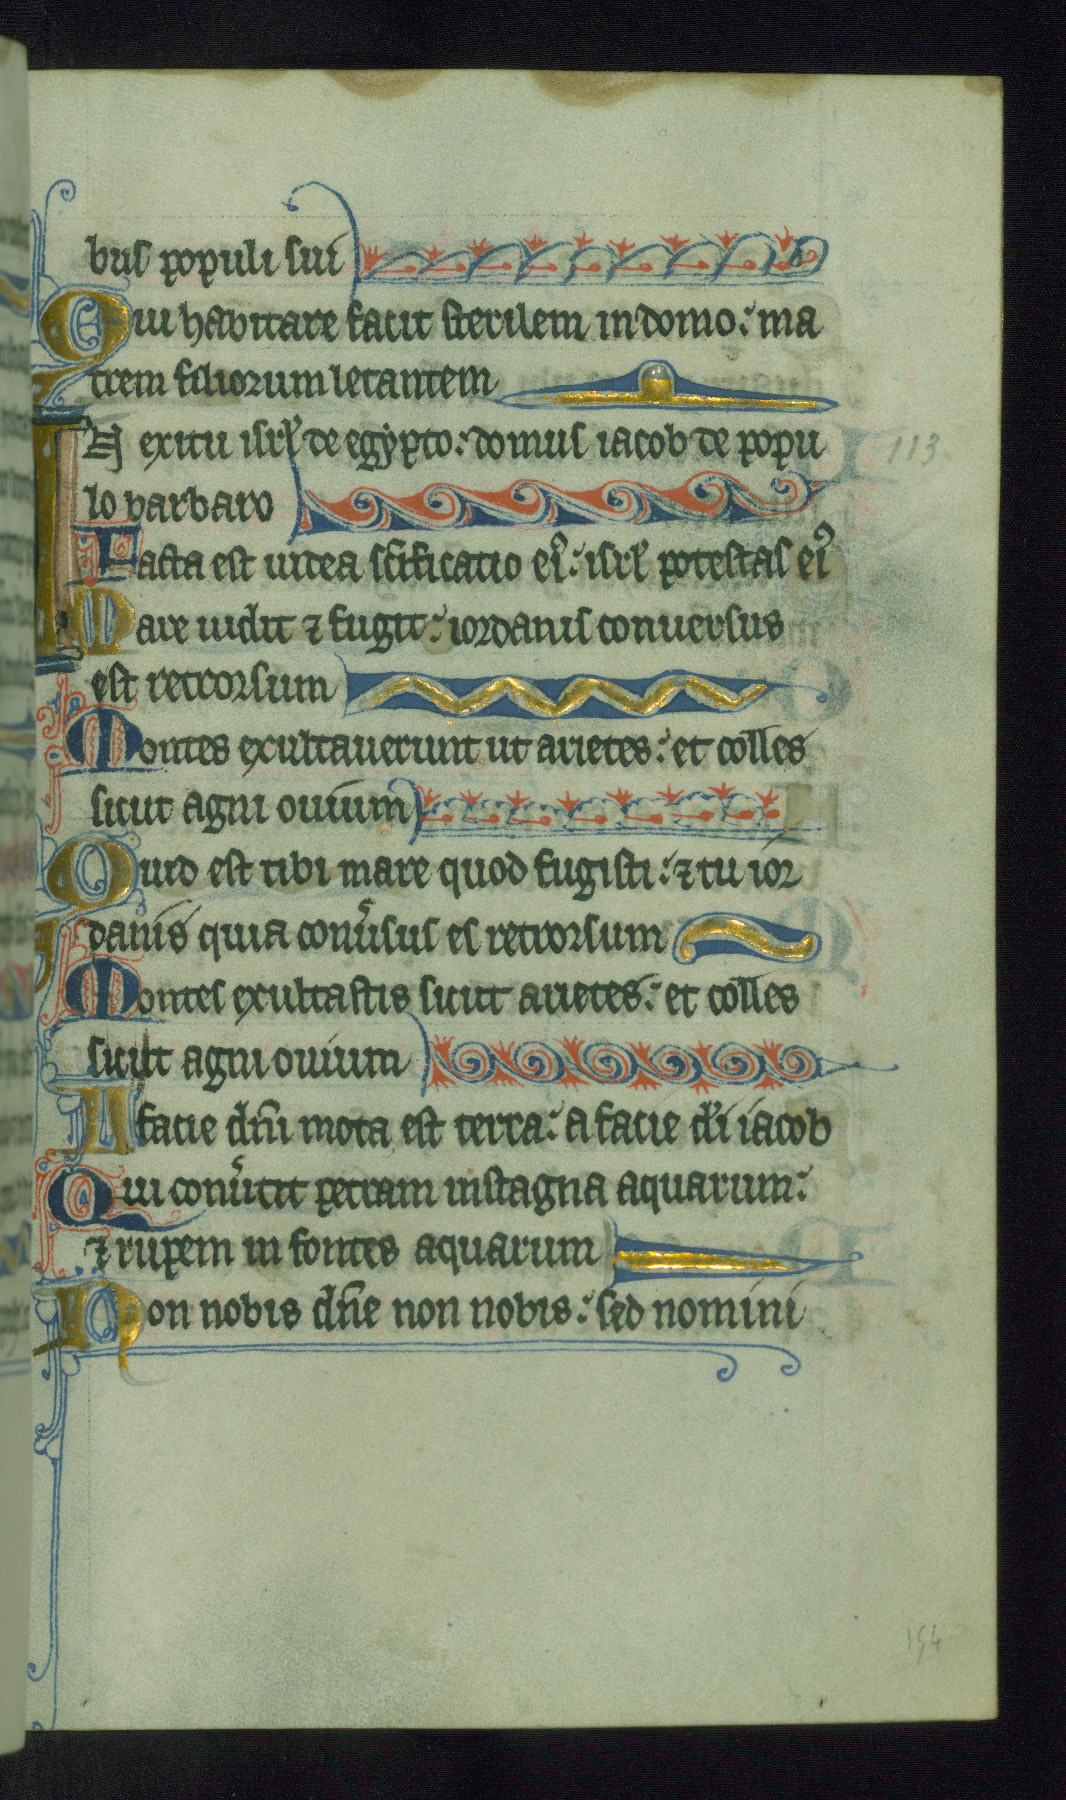 bus populi sui
Qui habitare facit sterilem in domo: ma
trem filiorum letantem
In exitu isrl' de egypto: domus iacob de popu
lo barbaro
Facta est iudea scificatio ei': isrl' potestas ei'
Mare uidit ⁊ fugit: iordanis conuersus
est retrorsum
Montes exultauerunt ut arietes: et colles
sicut agni ouium
Quid est tibi mare quod fugisti: ⁊ tu ior
danis quia conu'sus es retrorsum
Montes exultastis sicut arietes: et colles
sicut agni ouium
A facie dn̄i mota est terra: a facie di iacob
Qui conu'tit petram in stagna aquarum:
⁊ rupem in fontes aquarum
Non nobis dn̄e non nobis: sed nomini
113
154